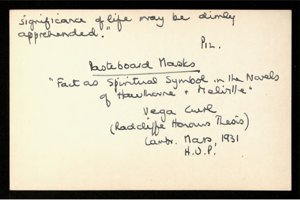 significance of life may be dimly
apprehended."
P12.
Pasteboard Masks
"Fact as Spiritual Symbol in the Novels
of Hawthorne + Melville"
Vega Curl
(Radcliffe Honours Thesis)
Cambr. Mass, 1931
H.U.P.